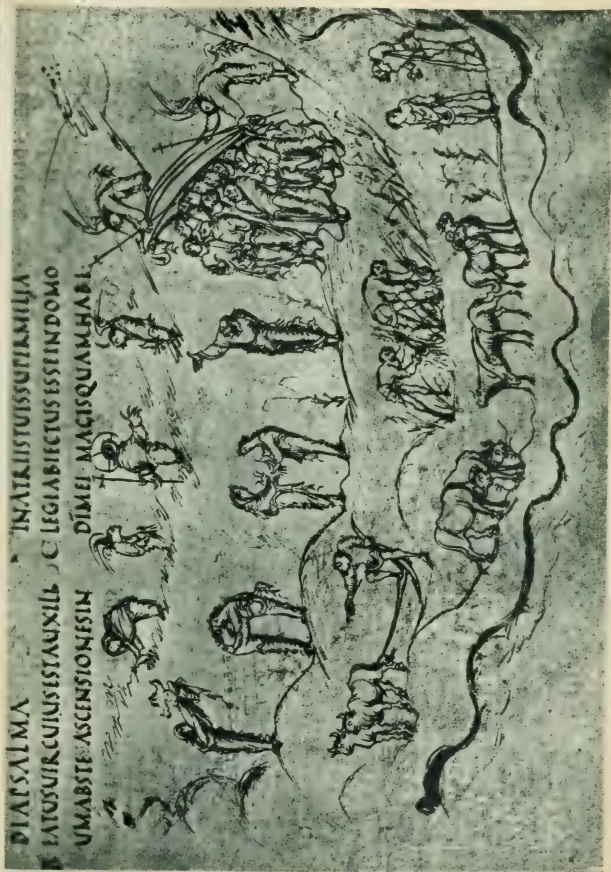 DIAPSALMA
EATUSUIRCUIUSESTAUXILI
UMABSTE·ASCENSIONESIN
INATRIISTUISSUPERMILIA
E LEGIABIECTUSESSEINDOMO
DIMEI MAGISQUAMHABI